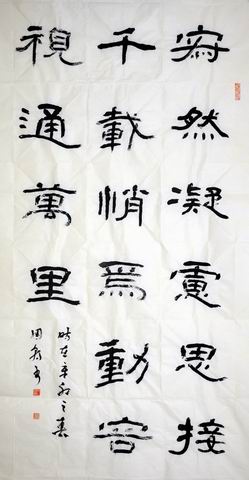 寂然凝慮思接
千載悄焉動容
視通萬里
时在辛卯之春